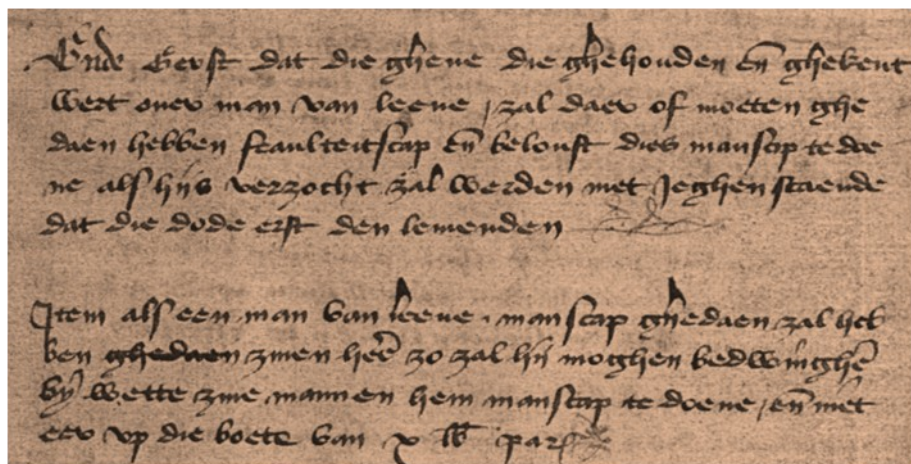 Ende Eerst dat die ghene die ghehouden en̄ ghekent
wert over man van leene / zal daer of moeten ghe
daen hebben feaulteitscap en̄ belouft dies manscip te doe
ne als hijs verzocht zal werden niet Jeghenstaende
dat die dode erft den levenden
Item als een man van leene manscap ghedaen zal heb
ben ghedaen zinen heere zo zal hij moghen bedwinghē
bij wette zine mannen hem manscap te doene / en̄ niet
eer up die boete van x lb par